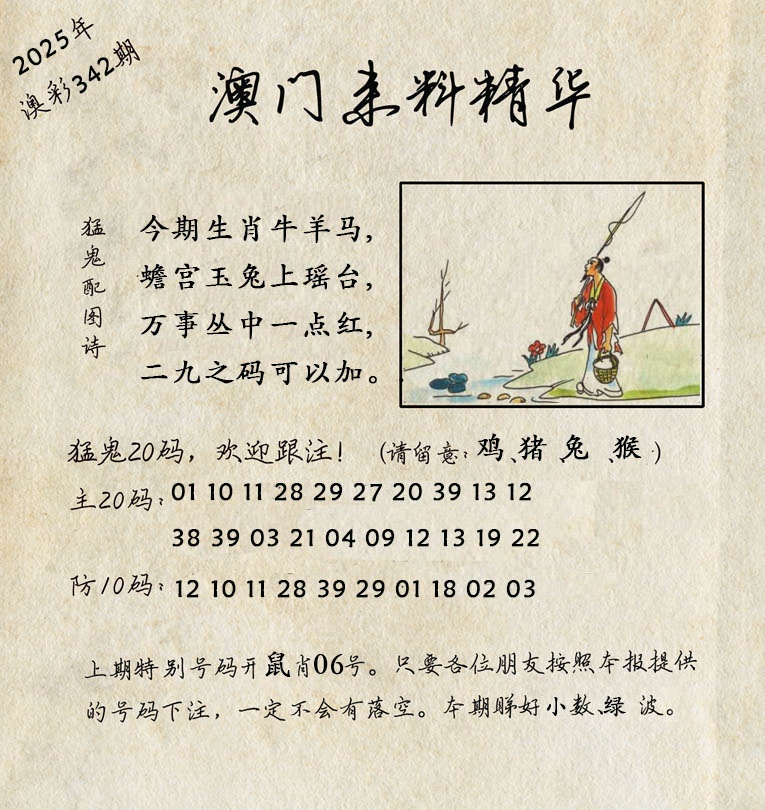 2025年
澳彩342期
澳门来料精华
猛鬼配图诗
今期生肖牛羊马，
蟾宫玉兔上瑶台，
万事丛中一点红，
二九之码可以加。
猛鬼20码，欢迎跟注！（请留意：鸡、猪、兔、猴、）
主20码：01 10 11 28 29 27 20 39 13 12
38 39 03 21 04 09 12 13 19 22
防10码：12 10 11 28 39 29 01 18 02 03
上期特别号码开鼠肖06号。只要各位朋友按照本报提供
的号码下注，一定不会有落空。本期睇好小数、绿 波。